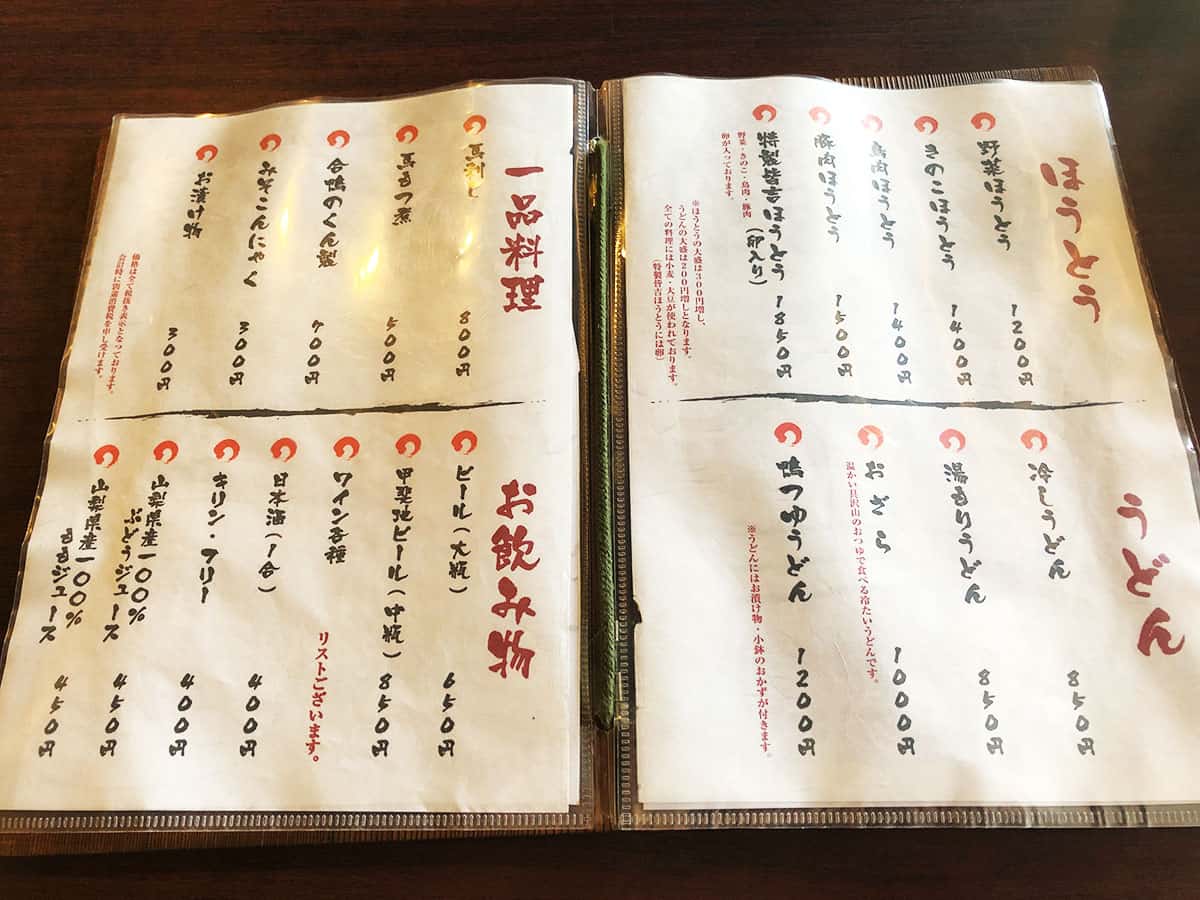 ほうとう
野菜ほうとう 1200円
きのこほうとう 1400円
鳥肉ほうとう 1400円
豚肉ほうとう 1500円
特製皆吉ほうとう(卵入り) 1850円
野菜・きのこ・鳥肉・豚肉
卵が入っております。
※ほうとうの大盛は300円増し、
うどんの大盛は200円増しとなります。
全ての料理には小麦・大豆が使われております。
(特製皆吉ほうとうには卵)
うどん
冷しうどん 850円
湯もりうどん 850円
おざら 1000円
温かい具沢山のおつゆで食べる冷たいうどんです。
鴨つゆうどん 1200円
※うどんにはお漬け物・小鉢のおかずが付きます。
一品料理
馬刺し 800円
馬もつ煮 500円
合鴨のくん製 700円
みそこんにゃく 300円
お漬け物 300円
価格は全て税抜き表示となっております。
会計時に別途消費税を申し受けます。
お飲み物
ビール(大瓶) 650円
甲斐地ビール(中瓶) 850円
ワイン各種
リストございます。
日本酒(一合) 400円
キリン・フリー 400円
山梨県産一〇〇%
ぶどうジュース 450円
山梨県産一〇〇%
ももジュース 450円